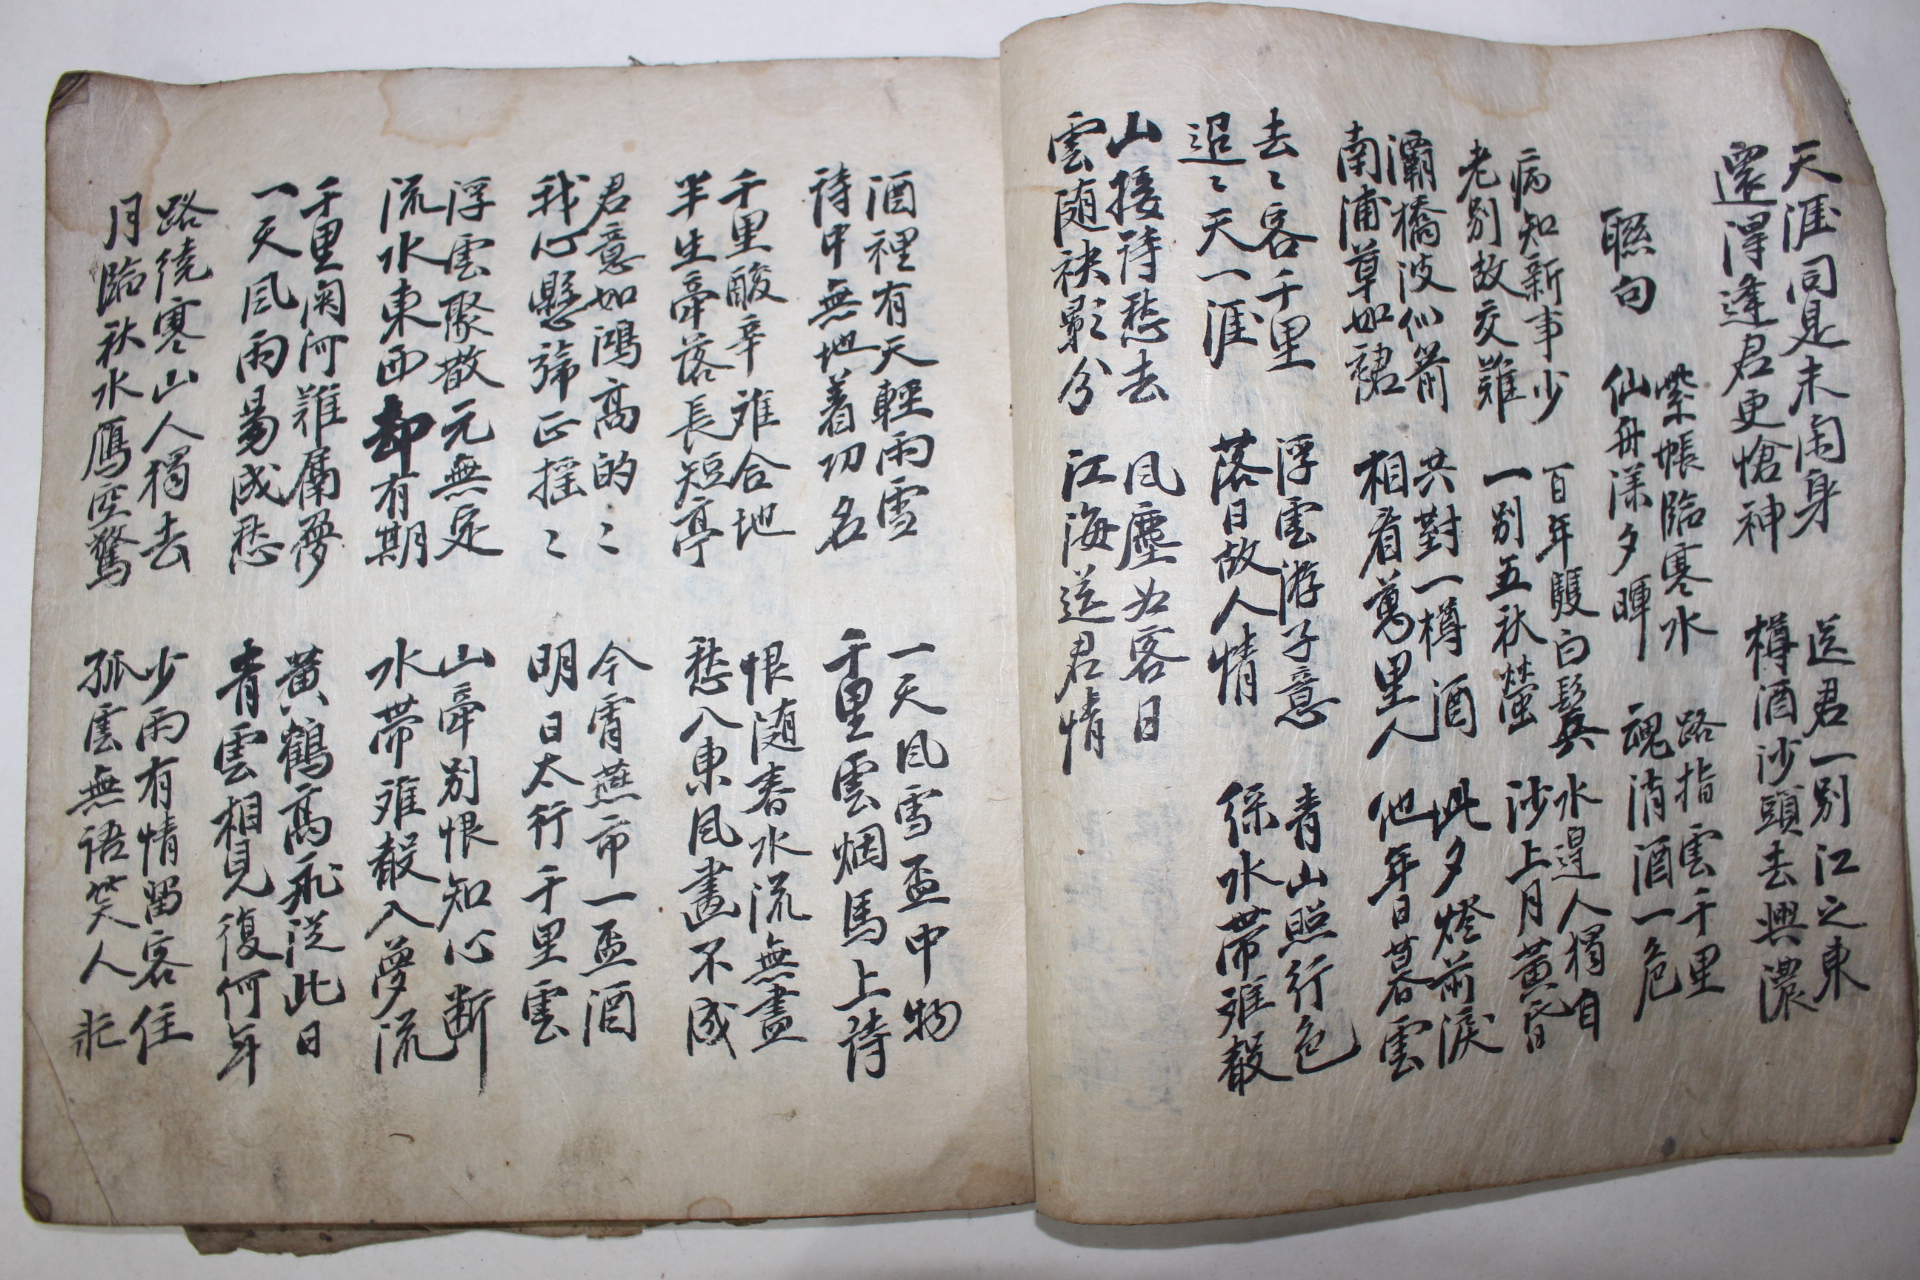 天涯同是未閑身　送君一別江之東
還得逢君更愴神　樽酒沙頭去興濃
聯句
紫帳臨寒水　路指雲千里
仙舟漾夕暉　魂消酒一危
病知新事少　百年雙白鬂　水邊人獨自
老別故交難　一別五秋螢　沙上月黃昏
灞橋波似箭　共對一樽酒　此夕燈前淚
南浦草如裙　相看萬里人　他年日暮雲
去〻客千里　浮雲游子意　青山照行色
迢〻天一涯　落日故人情　綠水帶難聲
山接詩愁去　風塵为客日
雲随袂影分　江海送君情
酒裡有天輕雨雪　一天風雪盃中物
詩中無地着功名　千里雲烟馬上詩
千里酸辛难合地　恨随春水流無盡
半生牽落長短亭　愁入東風畫不成
君意如鴻高的〻　今宵燕市一盃酒
我心懸旆正摇〻　明日太行千里雲
浮雲聚散元無定　山牽別恨知心断
流水東西却有期　水帶难聲入夢流
千里関河難屬夢　黃鶴高飛送此日
一天風雨易成愁　青雲相見復何年
路繞寒山人獨去　少雨有情留客住
月臨秋水鴈空驚　孤雲無語笑人非